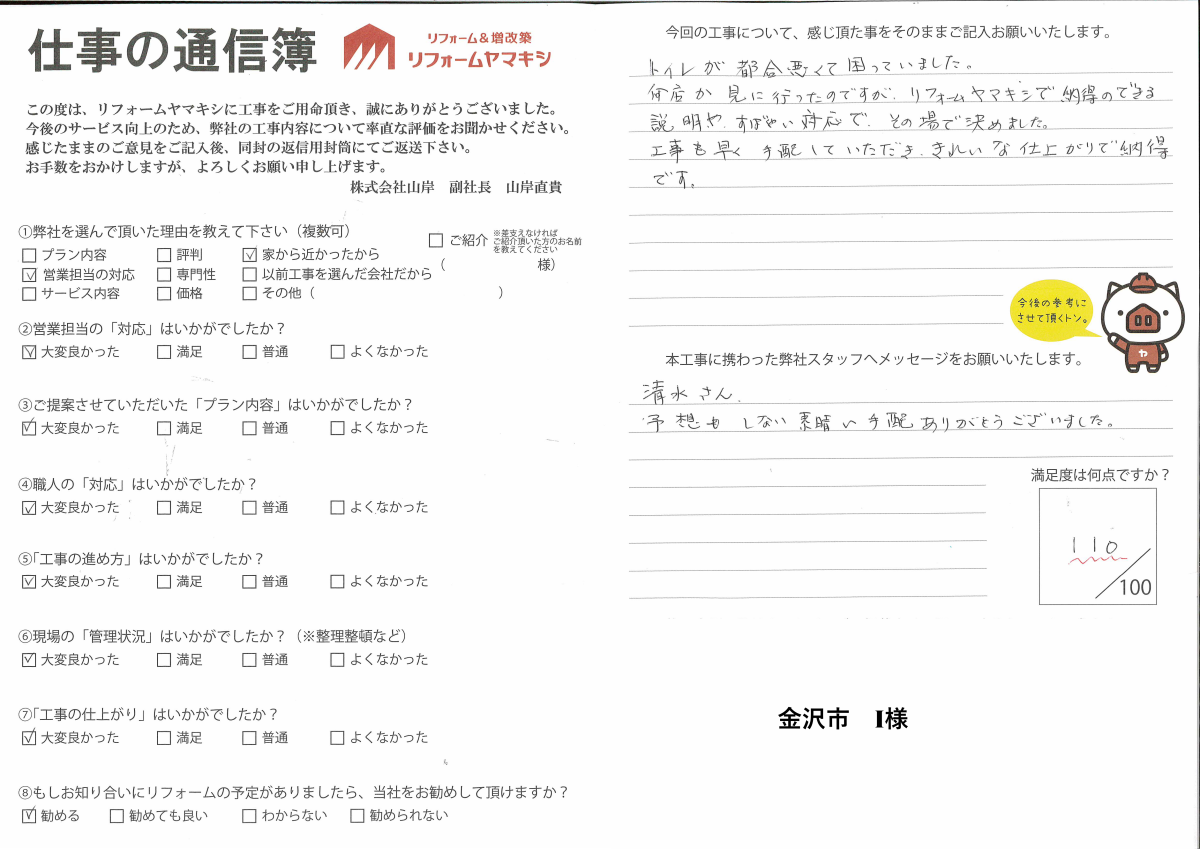 仕事の通信簿
リフォーム&増改築
リフォームヤマキシ
この度は、リフォームヤマキシに工事をご用命頂き、誠にありがとうございました。
今後のサービス向上のため、弊社の工事内容について率直な評価をお聞かせください。
感じたままのご意見をご記入後、同封の返信用封筒にてご返送下さい。
お手数をおかけしますが、よろしくお願い申し上げます。
株式会社山岸 副社長 山岸直貴
①弊社を選んで頂いた理由を教えて下さい（複数可）
□プラン内容 □評判 ☑家から近かったから
☑営業担当の対応 □専門性 □以前工事を選んだ会社だから
□サービス内容 □価格 □その他（ ）
□ご紹介 ※差支えなければ
ご紹介頂いた方のお名前
を教えてください
（ 様）
②営業担当の「対応」はいかがでしたか？
☑大変良かった □満足 □普通 □よくなかった
③ご提案させていただいた「プラン内容」はいかがでしたか？
☑大変良かった □満足 □普通 □よくなかった
④職人の「対応」はいかがでしたか？
☑大変良かった □満足 □普通 □よくなかった
⑤「工事の進め方」はいかがでしたか？
☑大変良かった □満足 □普通 □よくなかった
⑥現場の「管理状況」はいかがでしたか？（※整理整頓など）
☑大変良かった □満足 □普通 □よくなかった
⑦「工事の仕上がり」はいかがでしたか？
☑大変良かった □満足 □普通 □よくなかった
⑧もしお知り合いにリフォームの予定がありましたら、当社をお勧めして頂けますか？
☑勧める □勧めても良い □わからない □勧められない
今回の工事について、感じ頂た事をそのままご記入お願いいたします。
トイレが都合悪くて困っていました。
何店か見に行ったのですが、リフォームヤマキシで納得のできる
説明や、すばやい対応で、その場で決めました。
工事も早く手配していただき、きれいな仕上がりで納得
です。
今後の参考に
させて頂くトン。
ヤ
本工事に携わった弊社スタッフへメッセージをお願いいたします。
清水さん、
予想もしない素晴い手配ありがとうございました。
満足度は何点ですか？
110
/100
金沢市 I様